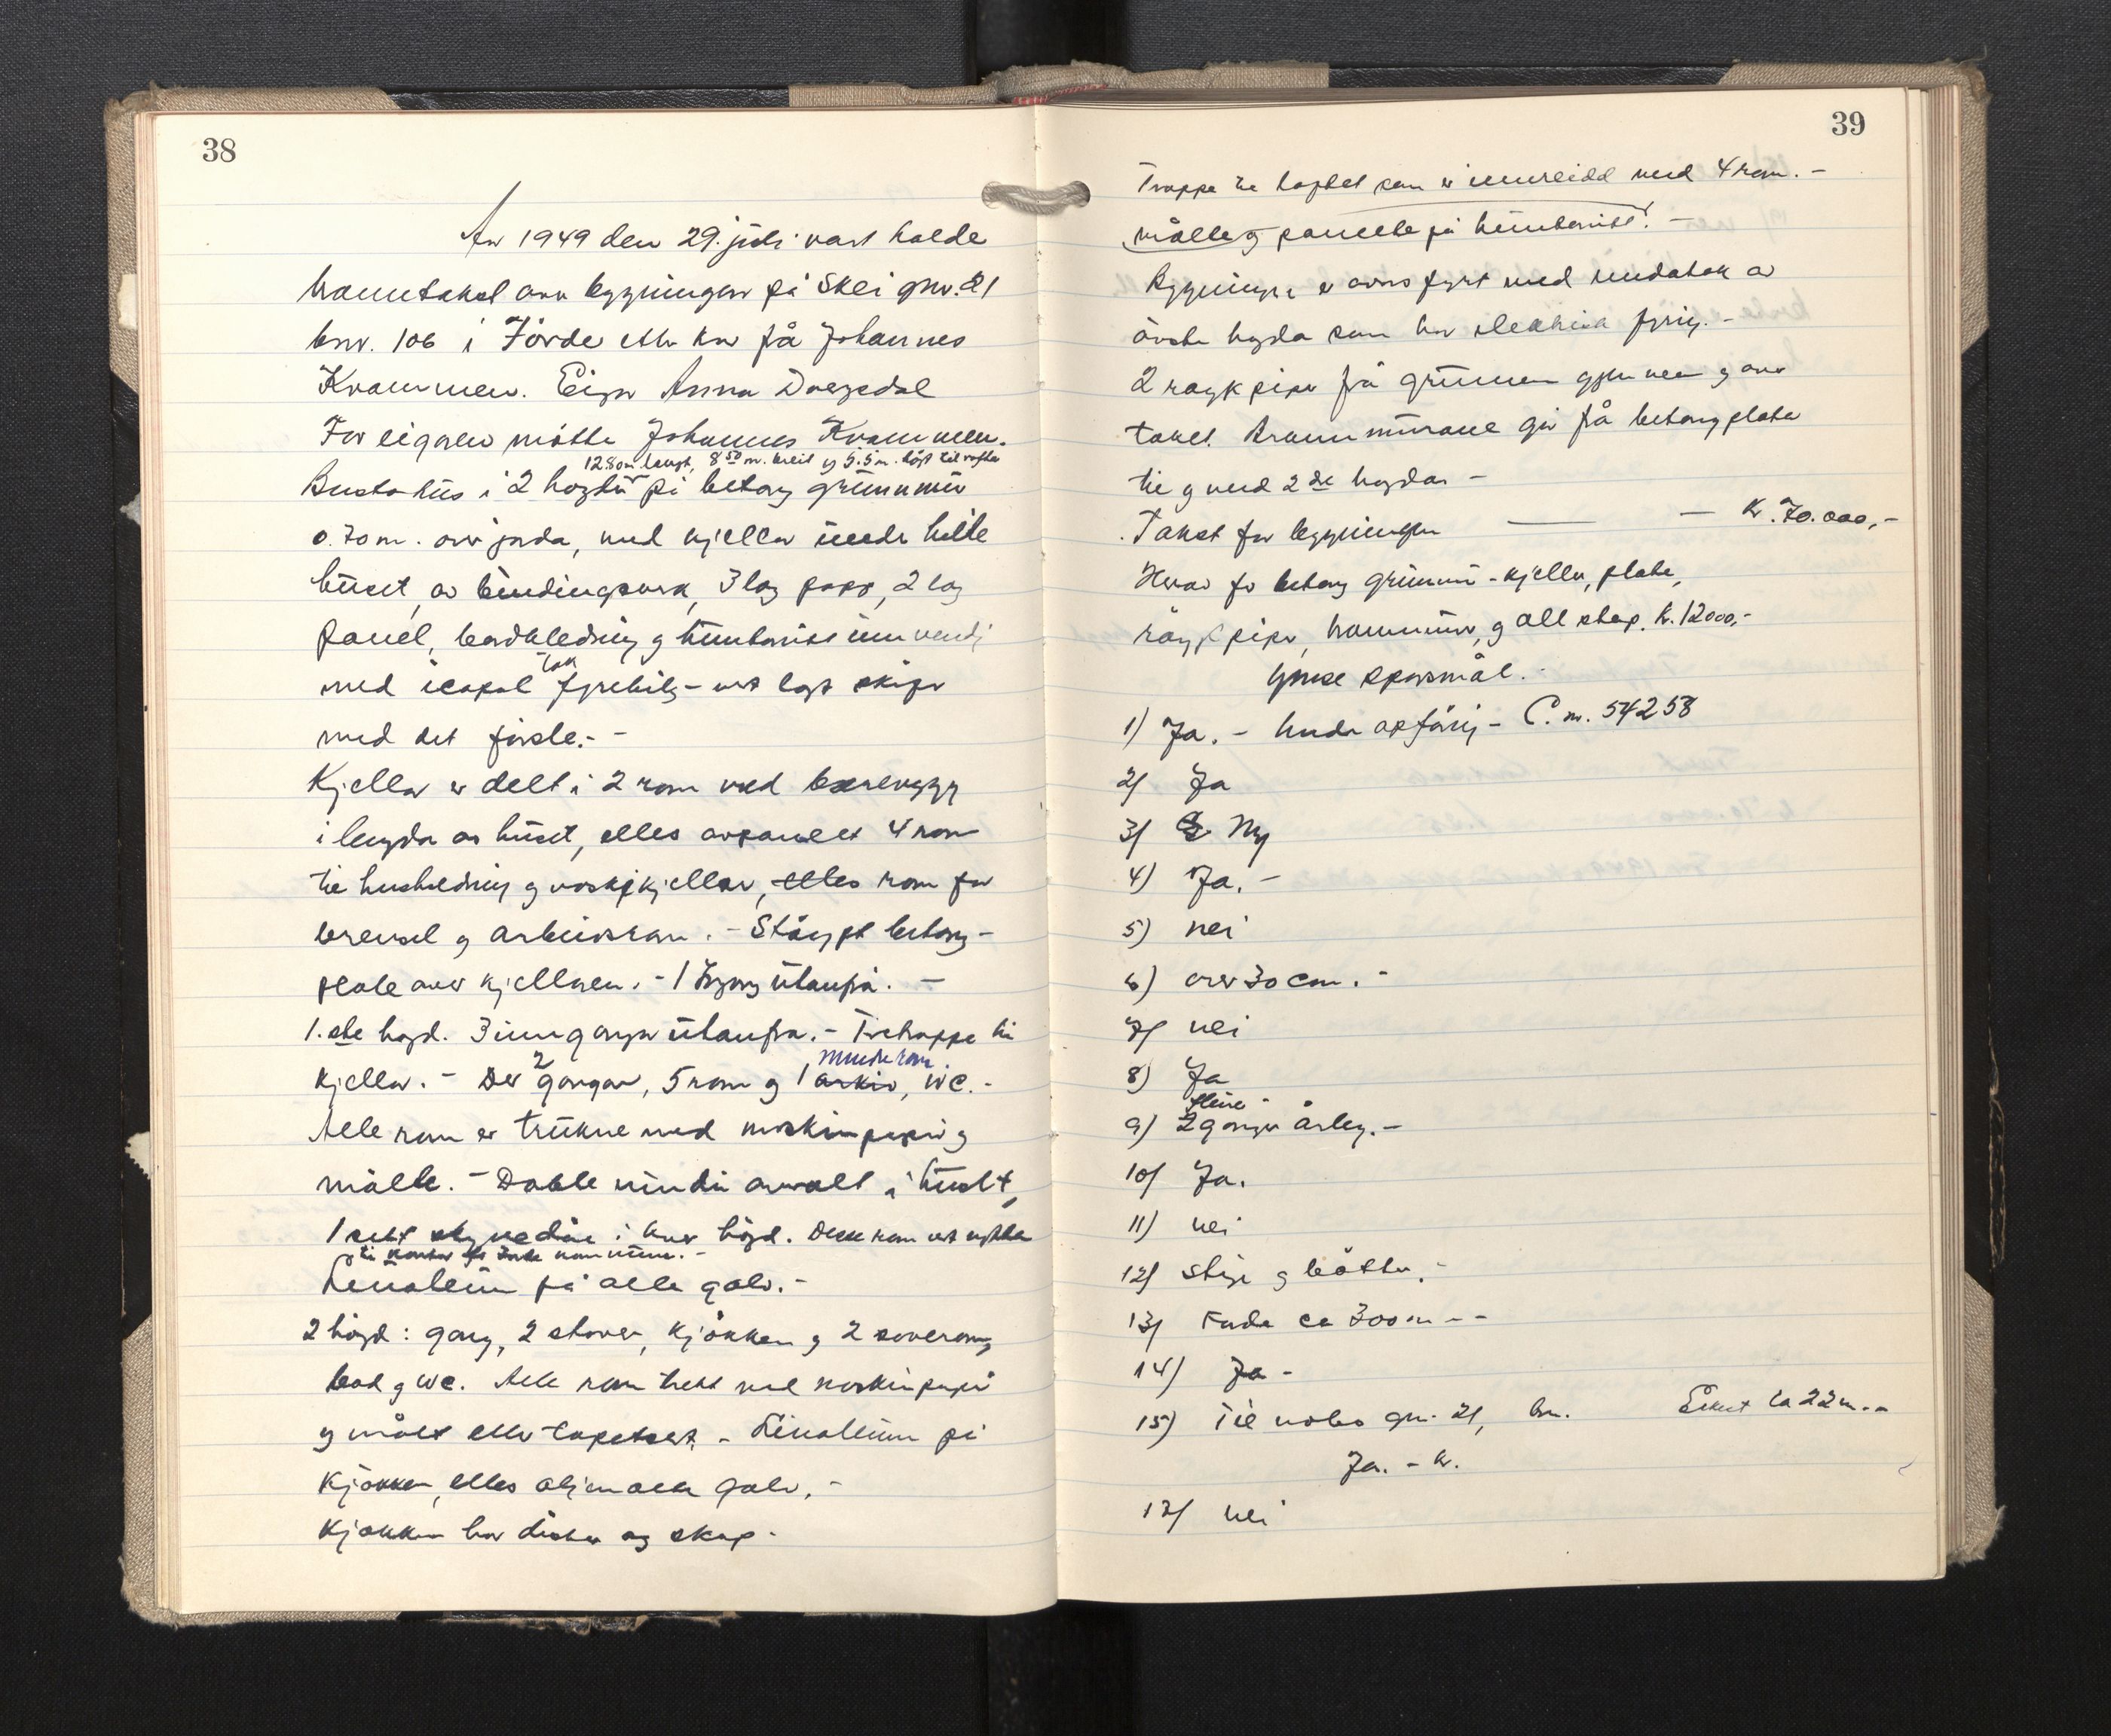 38
År 1949 den 29. juli vart halde
branntakst over bygningen på Skei gnr. 21
bnr. 106 i Förde etter krav frå Johannes
Krammen. Eigar Anna
For eigaren mötte Johannes Krammen.
12.80 m. langt, 8.50 m. breit og 5.5 m. högt til rafta
Bustahus i 2 högder på betong grunnmur
0.70 m. over jorda, med kjellar under heile
huset, av bindingsverk, 3 lag papp, 2 lag
panel, bordkledning og innvendig
med icopal tak fyrebils - vert lagt skifer
med det förste. -
Kjellar er delt i 2 rom med berevegg
i lengda av huset, elles avpanelt 4 rom
til husholdning og vaskekjellar, elles rom for
brensel og arbeidsrom. - Stöypt betong-
plate over kjellaren. - 1 utanfrå. -
1.ste högd. 3 inngangar utanfrå. - Tretrappe til
kjellar. - Der 2 gangar, 5 rom og 1 arkiv, WC. -
mindre rom
Alle rom er trukne med maskinpapir og
målte. - Doble vindu overalt i huset,
1 sett skyvedör i kvar högd. Desse rom vert nytta
til kontor for Förde kommune. -
Linoleum på alle golv. -
2 högd: gang, 2 stover, kjökken og 2 soverom,
bad og WC. Alle rom trekt med maskinpapir
og målt eller tapetsert. - Linoleum på
kjökken, elles oljemalte golv. -
Kjökken har disker og skap.
39
Trappe til loftet som er innreidd med 4 rom. -
målte og panelte på
Bygningen er omnsfyrt med undatak av
övste högda som har elektrisk fyring. -
2 röykpiper frå grunnen gjennom og over
taket. Brannmurane går frå betongplate
til og med 2de högda -
Takst for bygningen — — kr. 70.000,-
Herav for betong grunnmur - kjellar, plate,
röykpiper, brannmur, og all støp. kr. 12000,-
Ymse spørsmål.
1) Ja. - Under oppföring - C. nr. 54258
2) Ja
3) Ny
4) Ja. -
5) nei
6) over 30 cm. -
7) nei
8) Ja
fleire
9) 2 gonger årleg. -
10) Ja.
11) nei
12) stige og bötter. -
13) Förde ca 300 m - -
14) Ja -
15) Til nabo gnr. 21, bnr. Eikeset ca 22 m. -
Ja. - kr.
17) nei